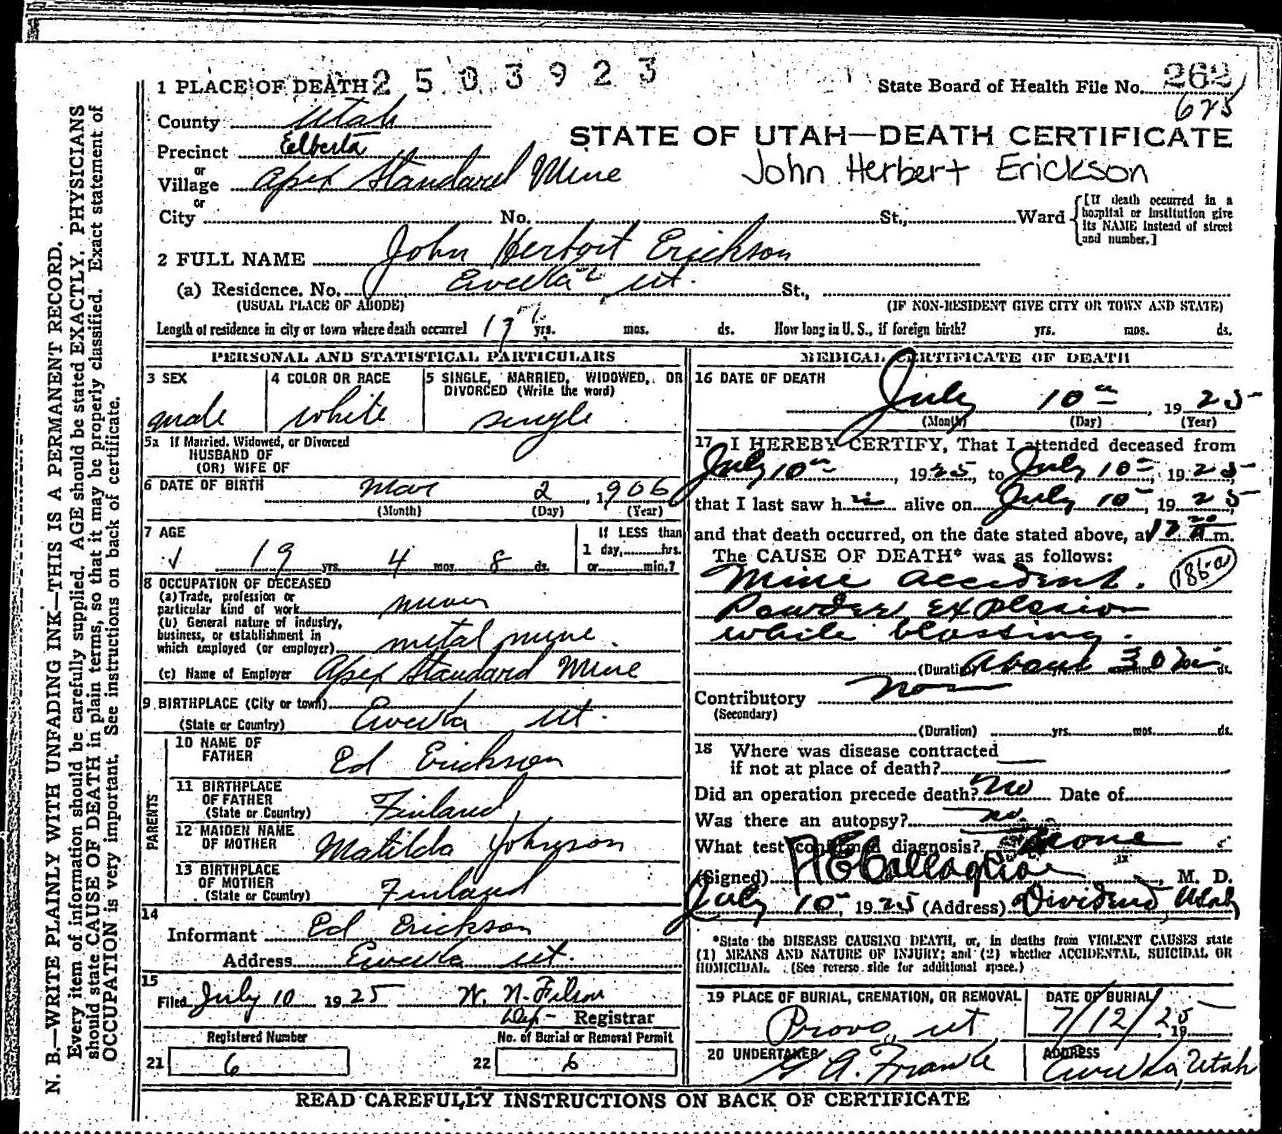 1 PLACE OF DEATH 2503923
State Board of Health File No. 262
675
County Utah
STATE OF UTAH—DEATH CERTIFICATE
Precinct Elberta
or
Village Apex Standard Mine
John Herbert Erickson
or
City No. St., Ward
[If death occurred in a hospital or institution give its NAME instead of street and number.]
2 FULL NAME John Herbert Erickson
(a) Residence, No. Eureka Ut. St.,
(USUAL PLACE OF ABODE) (IF NON-RESIDENT GIVE CITY OR TOWN AND STATE)
Length of residence in city or town where death occurred 19 yrs. mos. ds. How long in U. S., if foreign birth? yrs. mos. ds.
PERSONAL AND STATISTICAL PARTICULARS
3 SEX male
4 COLOR OR RACE white
5 SINGLE, MARRIED, WIDOWED, OR DIVORCED (Write the word) single
5a If Married, Widowed, or Divorced
HUSBAND OF
(OR) WIFE OF
6 DATE OF BIRTH Mar 2, 1906
(Month) (Day) (Year)
7 AGE 19 yrs. 4 mos. 8 ds.
If LESS than
1 day, hrs.
or min.?
8 OCCUPATION OF DECEASED
(a) Trade, profession or
particular kind of work miner
(b) General nature of industry,
business, or establishment in
which employed (or employer) metal mine.
(c) Name of Employer Apex Standard Mine
9 BIRTHPLACE (City or town) Eureka Ut.
(State or Country)
PARENTS
10 NAME OF
FATHER Ed Erickson
11 BIRTHPLACE
OF FATHER
(State or Country) Finland
12 MAIDEN NAME
OF MOTHER Matilda Johnson
13 BIRTHPLACE
OF MOTHER
(State or Country) Finland
14
Informant Ed Erickson
Address Eureka Ut.
15
Filed July 10 1925 W. N. Filson
Dep- Registrar
Registered Number No. of Burial or Removal Permit
21 6 22 6
MEDICAL CERTIFICATE OF DEATH
16 DATE OF DEATH
July 10th, 1925
(Month) (Day) (Year)
17 I HEREBY CERTIFY, That I attended deceased from
July 10th, 1925, to July 10th, 1925,
that I last saw h alive on July 10th, 1925,
and that death occurred, on the date stated above, at m.
The CAUSE OF DEATH* was as follows:
Mine accident. 186-a
Powder explosion
while blasting.
(Duration) About 30 min ds.
Contributory non
(Secondary)
(Duration) yrs. mos. ds.
18 Where was disease contracted
if not at place of death?
Did an operation precede death? No Date of
Was there an autopsy? no.
What test confirmed diagnosis? none
(Signed) , M. D.
July 10th, 1925 (Address) Dividend, Utah
*State the DISEASE CAUSING DEATH, or, in deaths from VIOLENT CAUSES state
(1) MEANS AND NATURE OF INJURY; and (2) whether ACCIDENTAL, SUICIDAL OR
HOMICIDAL. (See reverse side for additional space.)
19 PLACE OF BURIAL, CREMATION, OR REMOVAL
Provo, Ut
DATE OF BURIAL
7/12/25 19
20 UNDERTAKER A. Franke
ADDRESS
Eureka, Utah
READ CAREFULLY INSTRUCTIONS ON BACK OF CERTIFICATE
N. B.—WRITE PLAINLY WITH UNFADING INK—THIS IS A PERMANENT RECORD.
Every item of information should be carefully supplied. AGE should be stated EXACTLY. PHYSICIANS
should state CAUSE OF DEATH in plain terms, so that it may be properly classified. Exact statement of
OCCUPATION is very important. See instructions on back of certificate.